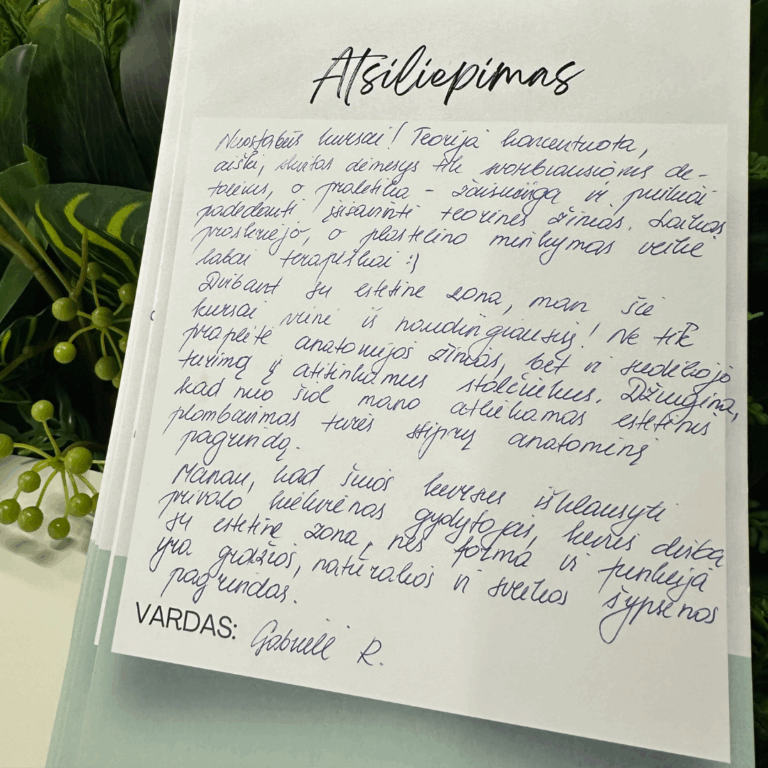 Atsiliepimas
Nuostabūs kursai! Teorija koncentruota,
aiški, skirtas dėmesys tik svarbiausioms de-
talėms, o praktika - žaisminga ir puikiai
padedanti įsisavinti teorines žinias. Laikas
praskriejo, o plastelino minkymas veikė
labai terapiškai :)
Dirbant su estetine zona, man šie
kursai vieni iš naudingiausių! Ne tik
praplėtė anatomijos žinias, bet ir sudėliojo
turimą į atitinkamus stalčiukus. Džiugina,
kad nuo šiol mano atliekamas estetinis
plombavimas turės stiprų anatominį
pagrindą.
Manau, kad šiuos kursus išklausyti
privalo kiekvienas gydytojas, kuris dirba
su estetine zona, nes forma ir funkcija
yra gražios, natūralios ir sveikos šypsenos
pagrindas.
VARDAS: Gabrielė R.